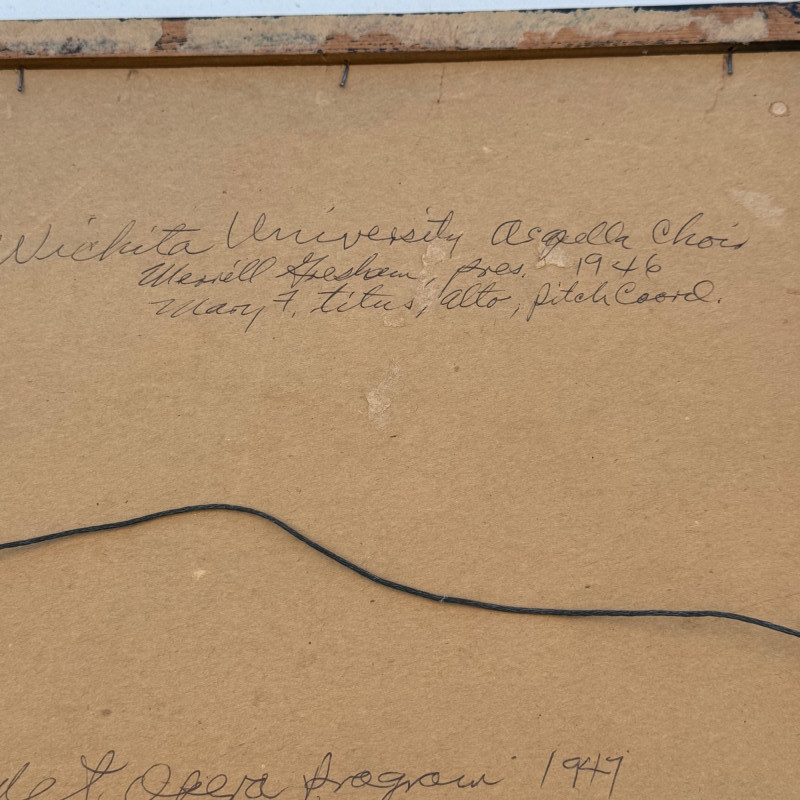 Wichita University Acapella Choir
Merrill Gresham, pres. 1946
Mary F. Titus, alto, pitch Coord.
Opera program 1947